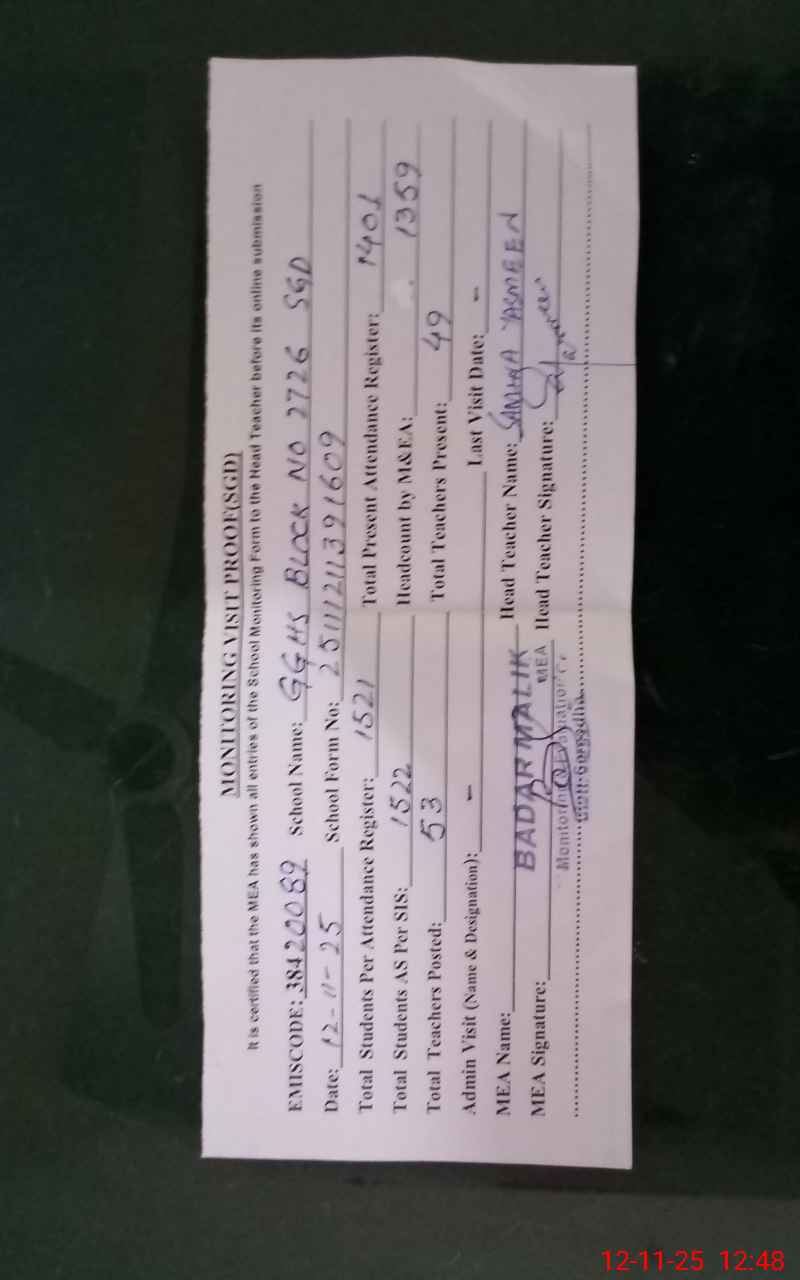 MONITORING VISIT PROOF(SGD)
It is certified that the MEA has shown all entries of the School Monitoring Form to the Head Teacher before its online submission
EMISCODE: 38420089 School Name: GGHS BLOCK NO 2726 SGD
Date: 12-11-25 School Form No: 25111211391609
Total Students Per Attendance Register: 1521 Total Present Attendance Register: 1401
Total Students AS Per SIS: 1522 Headcount by M&EA: 1359
Total Teachers Posted: 53 Total Teachers Present: 49
Admin Visit (Name & Designation): - Last Visit Date: -
MEA Name: BADAR MALIK Head Teacher Name: SAMINA YASMEEN
MEA Signature: MEA Head Teacher Signature:
Monitoring
Sargodha
12-11-25 12:48